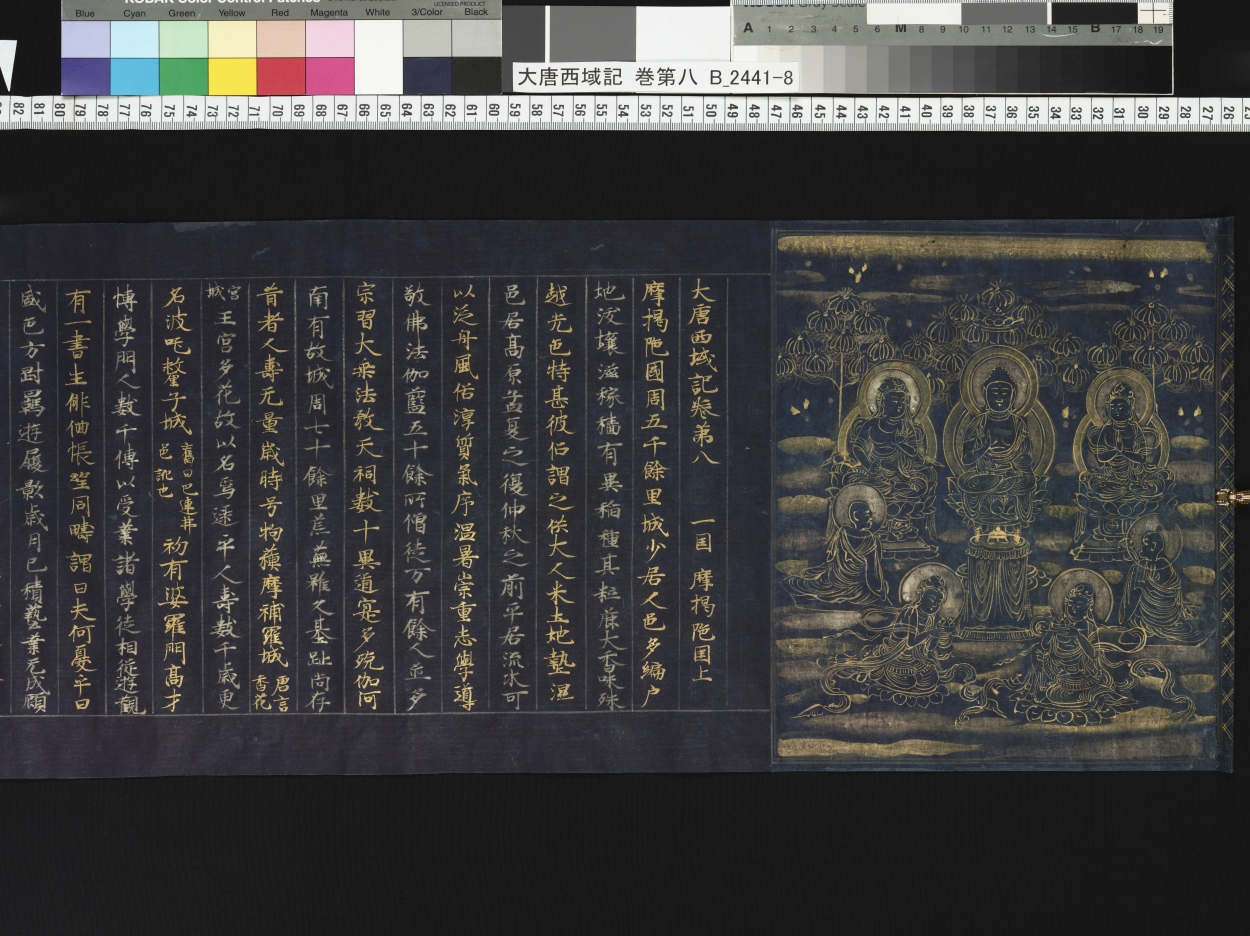 KODAK Color Control Patches
LICENSED PRODUCT
Blue Cyan Green Yellow Red Magenta White 3/Color Black
大唐西域記 巻第八 B_2441-8
A 1 2 3 4 5 6 M 8 9 10 11 12 13 14 15 B 17 18 19
82 81 80 79 78 77 76 75 74 73 72 71 70 69 68 67 66 65 64 63 62 61 60 59 58 57 56 55 54 53 52 51 50 49 48 47 46 45 44 43 42 41 40 39 38 37 36 35 34 33 32 31 30 29 28 27 26
大唐西域記卷第八 一国 摩揭陁国上
摩揭陁國周五千餘里城少居人邑多編戶
地沃壤滋稼穡有異稻種其粒麁大香味殊
越光色特甚彼俗謂之供大人米土地墊濕
邑居高原孟夏之後仲秋之前平居流水可
以泛舟風俗淳質氣序温暑崇重志學尊
敬佛法伽藍五十餘所僧徒万有餘人並多
宗習大乘法教天祠數十異道寔多殑伽河
南有故城周七十餘里荒蕪雖久基趾尚存
昔者人壽无量歲時号拘蘓摩補羅城 唐言香花
宮城 王宮多花故以名焉逮乎人壽數千歲更
名波吒釐子城 舊曰巴連弗邑訛也 初有婆羅門高才
博學門人數千傳以受業諸學徒相從遊觀
有一書生俳佪悵望同疇謂曰夫何憂乎曰
盛色方剛羇遊履影歲月已積藝業无成顧